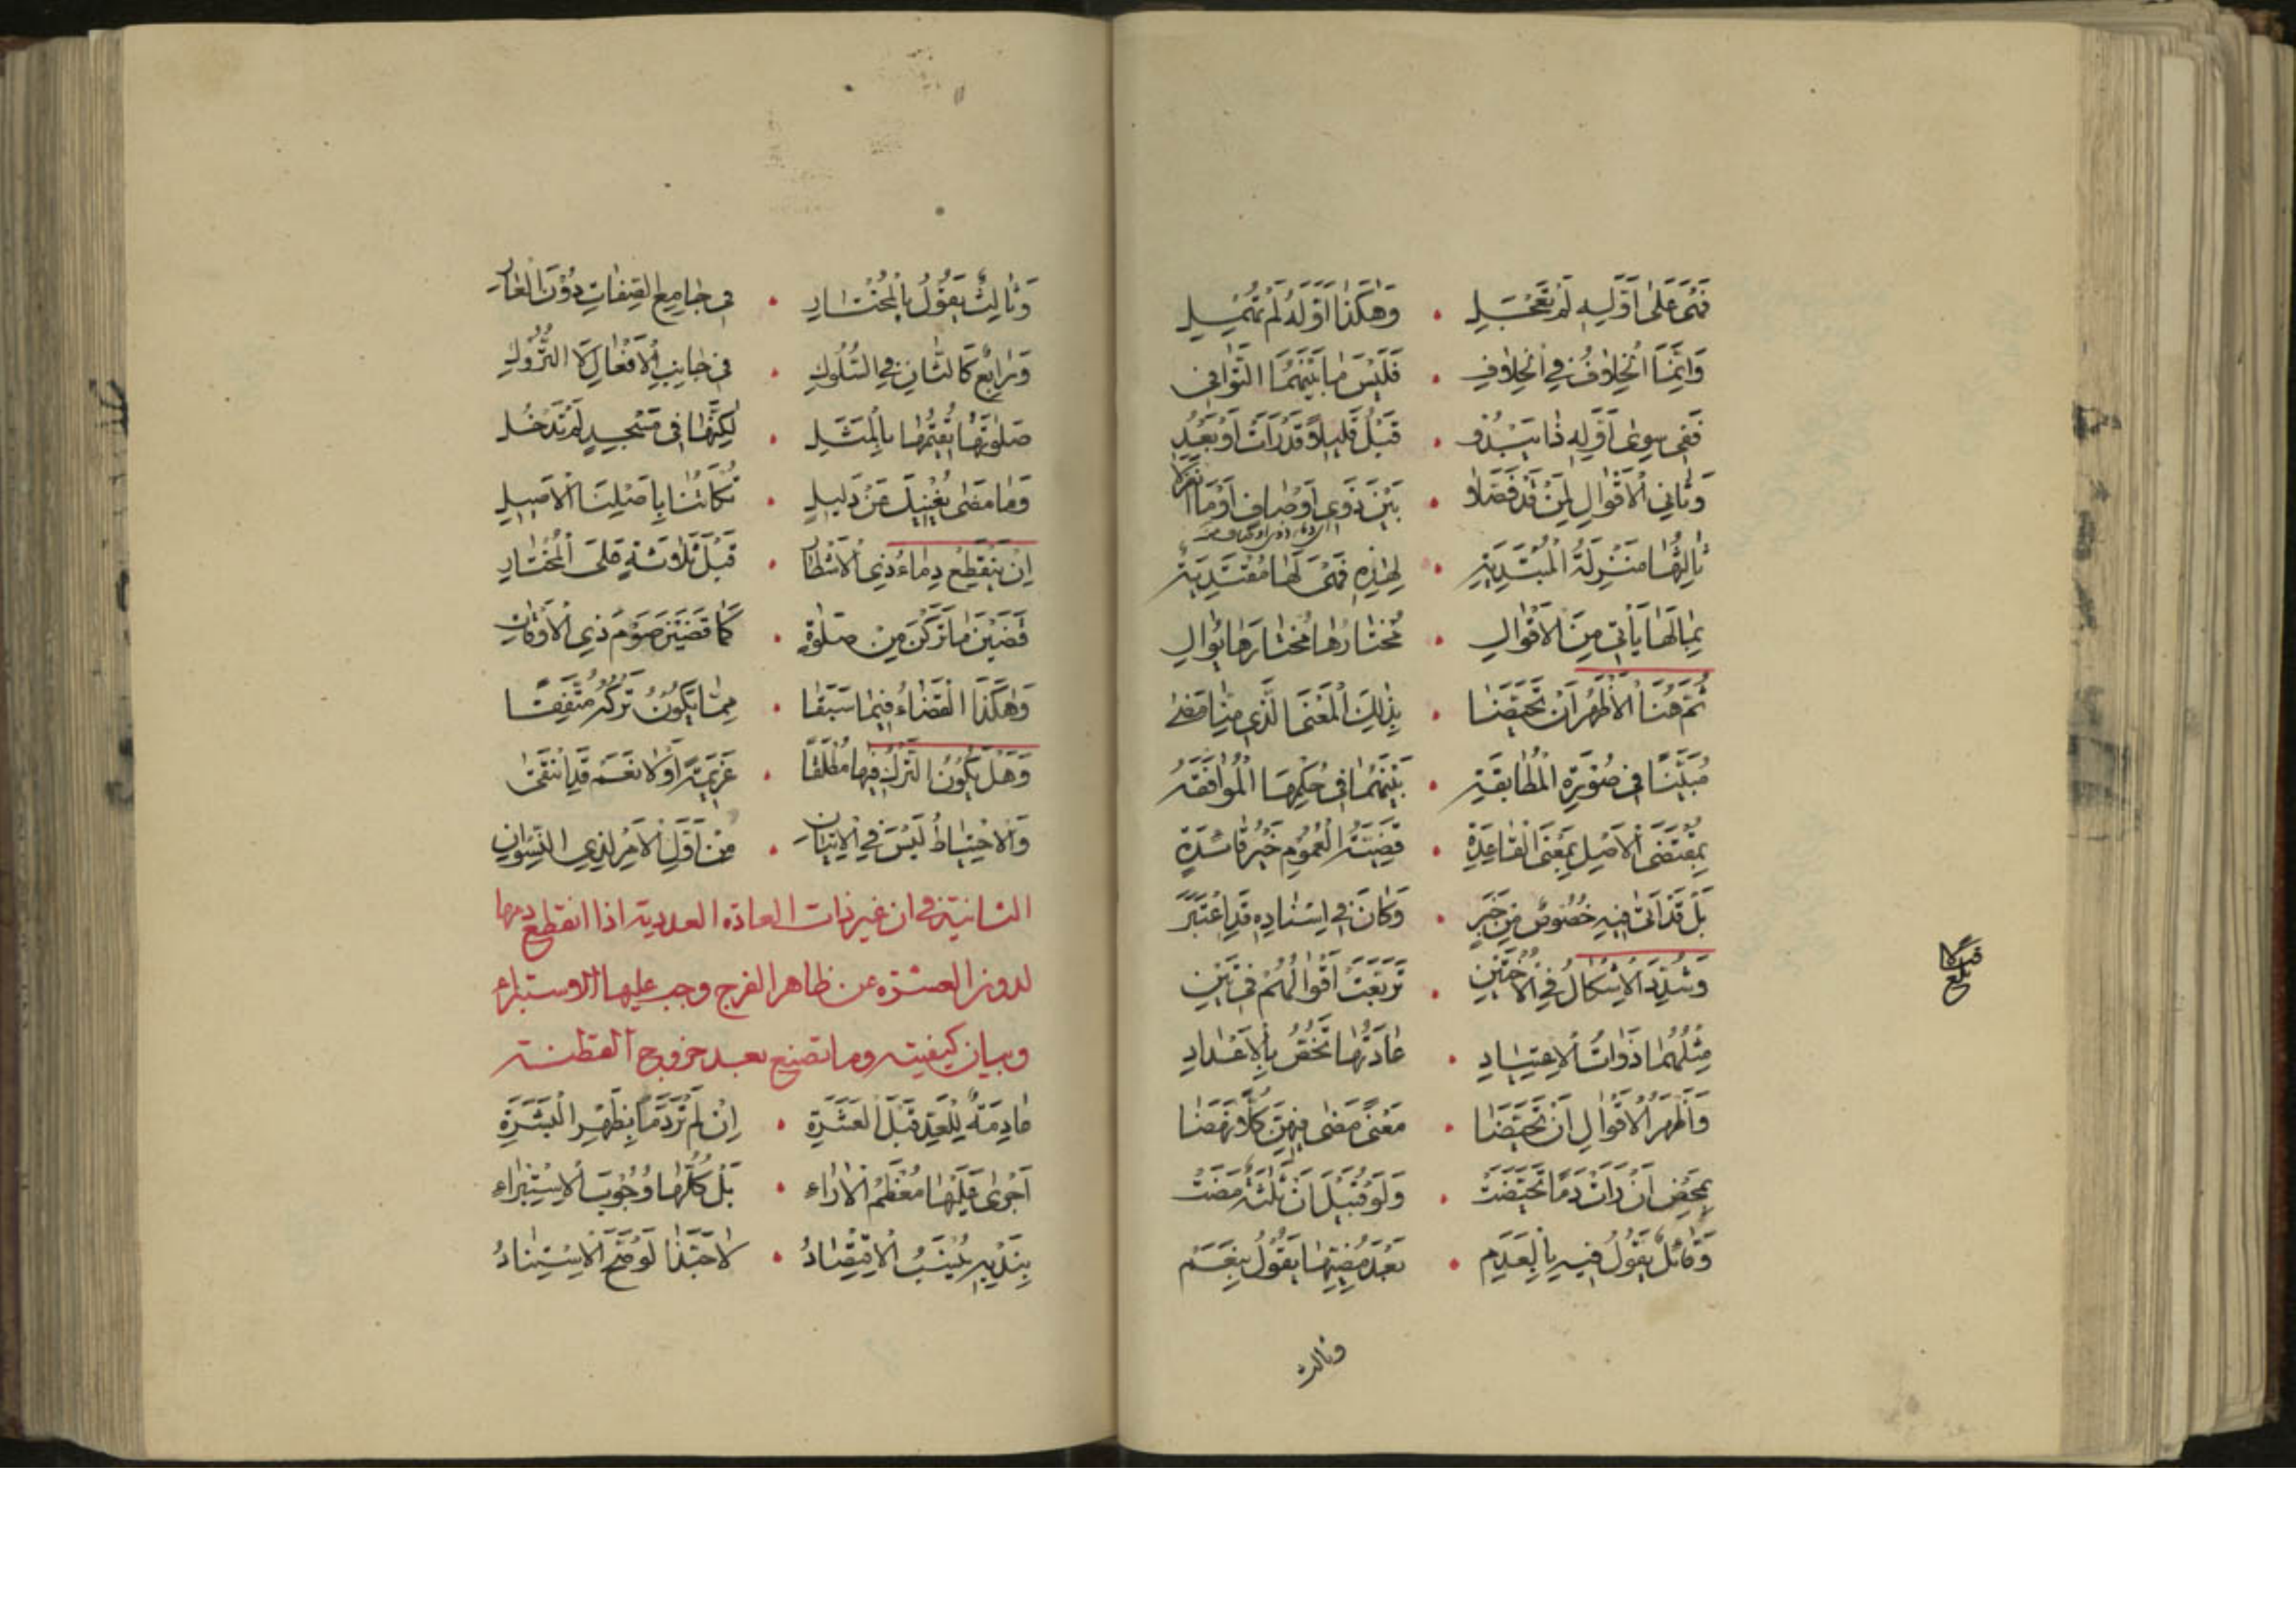 فهي على أوليه لم تعجل • وهكذا أوله لم تمهل
وإنما الخلاف في الخلاف • فليس ما بينهما التوافي
ففي سوى أوله ذا يبدو • قبل قليلا قد رأت أو بعد
وثاني الأقوال لمن قد فصلا • بين ذوي أوصاف أو ما
ثالثها منزلة المبتدية • لهذه فهي لها مقتدية
بما لها يأتي من الأقوال • مختارها مختارها يوال
ثم هنا الأظهر أن تحيضا • بذلك المعنى الذي منا مضى
مبينا في صورة المطابقة • بينهما في حكمها الموافقة
بمقتضى الأصل بمعنى القاعدة • قضية العموم خير فاشدة
بل قد أتى فيه خصوص من خبر • وكان في إسناده قد اعتبر
وشدد الإشكال في الأختين • تربعت أقوالهم في تين
مثلهما ذوات الاعتياد • عادتها تختص بالأعداد
وأظهر الأقوال أن تحيضا • معنى مضى فيهن كلا فرضا
بمحض أن رأت دما تحيضت • ولو قبيل أن ثلثة مضت
وقائل يقول فيه بالعدم • بعد مضيها يقول بنعم
وثالث
بلغ
وثالث يقول بالمختار • في جامع الصفات دون العار
ورابع كالثان في السلوك • في جانب الأفعال لا التروك
صلوتها تتمها بالمثل • لكنها في مسجد لم تدخل
وما مضى يغنيك عن دليل • نكاتنا بأصلنا الأصيل
إن ينقطع دماء ذي الأشطار • قبل ثلاثة على المختار
قضين ما تركن من صلوة • كما قضين صوم ذي الأوقات
وهكذا القضاء فيما سبقا • مما يكون تركه متفقا
وهل يكون الترك فيها مطلقا • عزيمة أو لا نعم قد انتقى
والاحتياط ليس في الإتيان • من أول الأمر لذي النسوان
الثانية في ان غير ذات العادة العددية اذا انقطع دمها
لدون العشرة عن ظاهر الفرج وجب عليها الاستبراء
وبيان كيفيته وما تصنع بعد خروج القطنة
ما دمة للعد قبل العشرة • إن لم تر دما بظهر البشرة
أجرى عليها معظم الآراء • بل كلها وجوب الاستبراء
بندبه ينسب الاقتصاد • لا حبذا لو وضح الاستناد